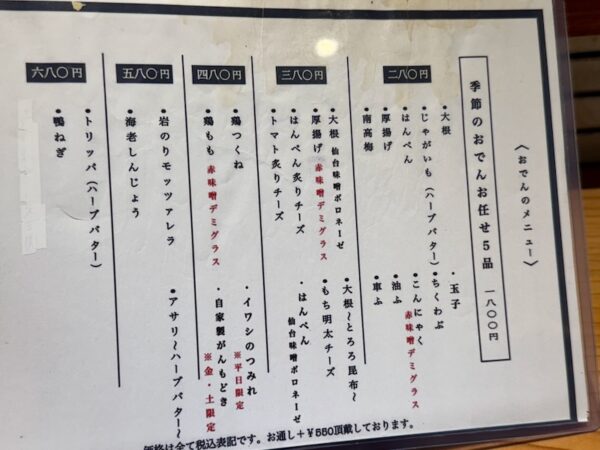 〈おでんのメニュー〉
季節のおでんお任せ5品 一八〇〇円
二八〇円
・大根
・じゃがいも(ハーブバター)
・はんぺん
・厚揚げ
・南高梅
・玉子
・ちくわぶ
・こんにゃく 赤味噌デミグラス
・油ふ
・車ふ
三八〇円
・大根 仙台味噌ボロネーゼ
・厚揚げ 赤味噌デミグラス
・はんぺん炙りチーズ
・トマト炙りチーズ
・大根〜とろろ昆布〜
・もち明太チーズ
・はんぺん
仙台味噌ボロネーゼ
四八〇円
・鶏つくね
・鶏もも 赤味噌デミグラス
・イワシのつみれ
※平日限定
・自家製がんもどき
※金・土限定
五八〇円
・岩のりモッツァレラ
・海老しんじょう
・アサリ〜ハーブバター〜
六八〇円
・トリッパ(ハーブバター)
・鴨ねぎ
価格は全て税込表記です。お通し+¥550頂戴しております。